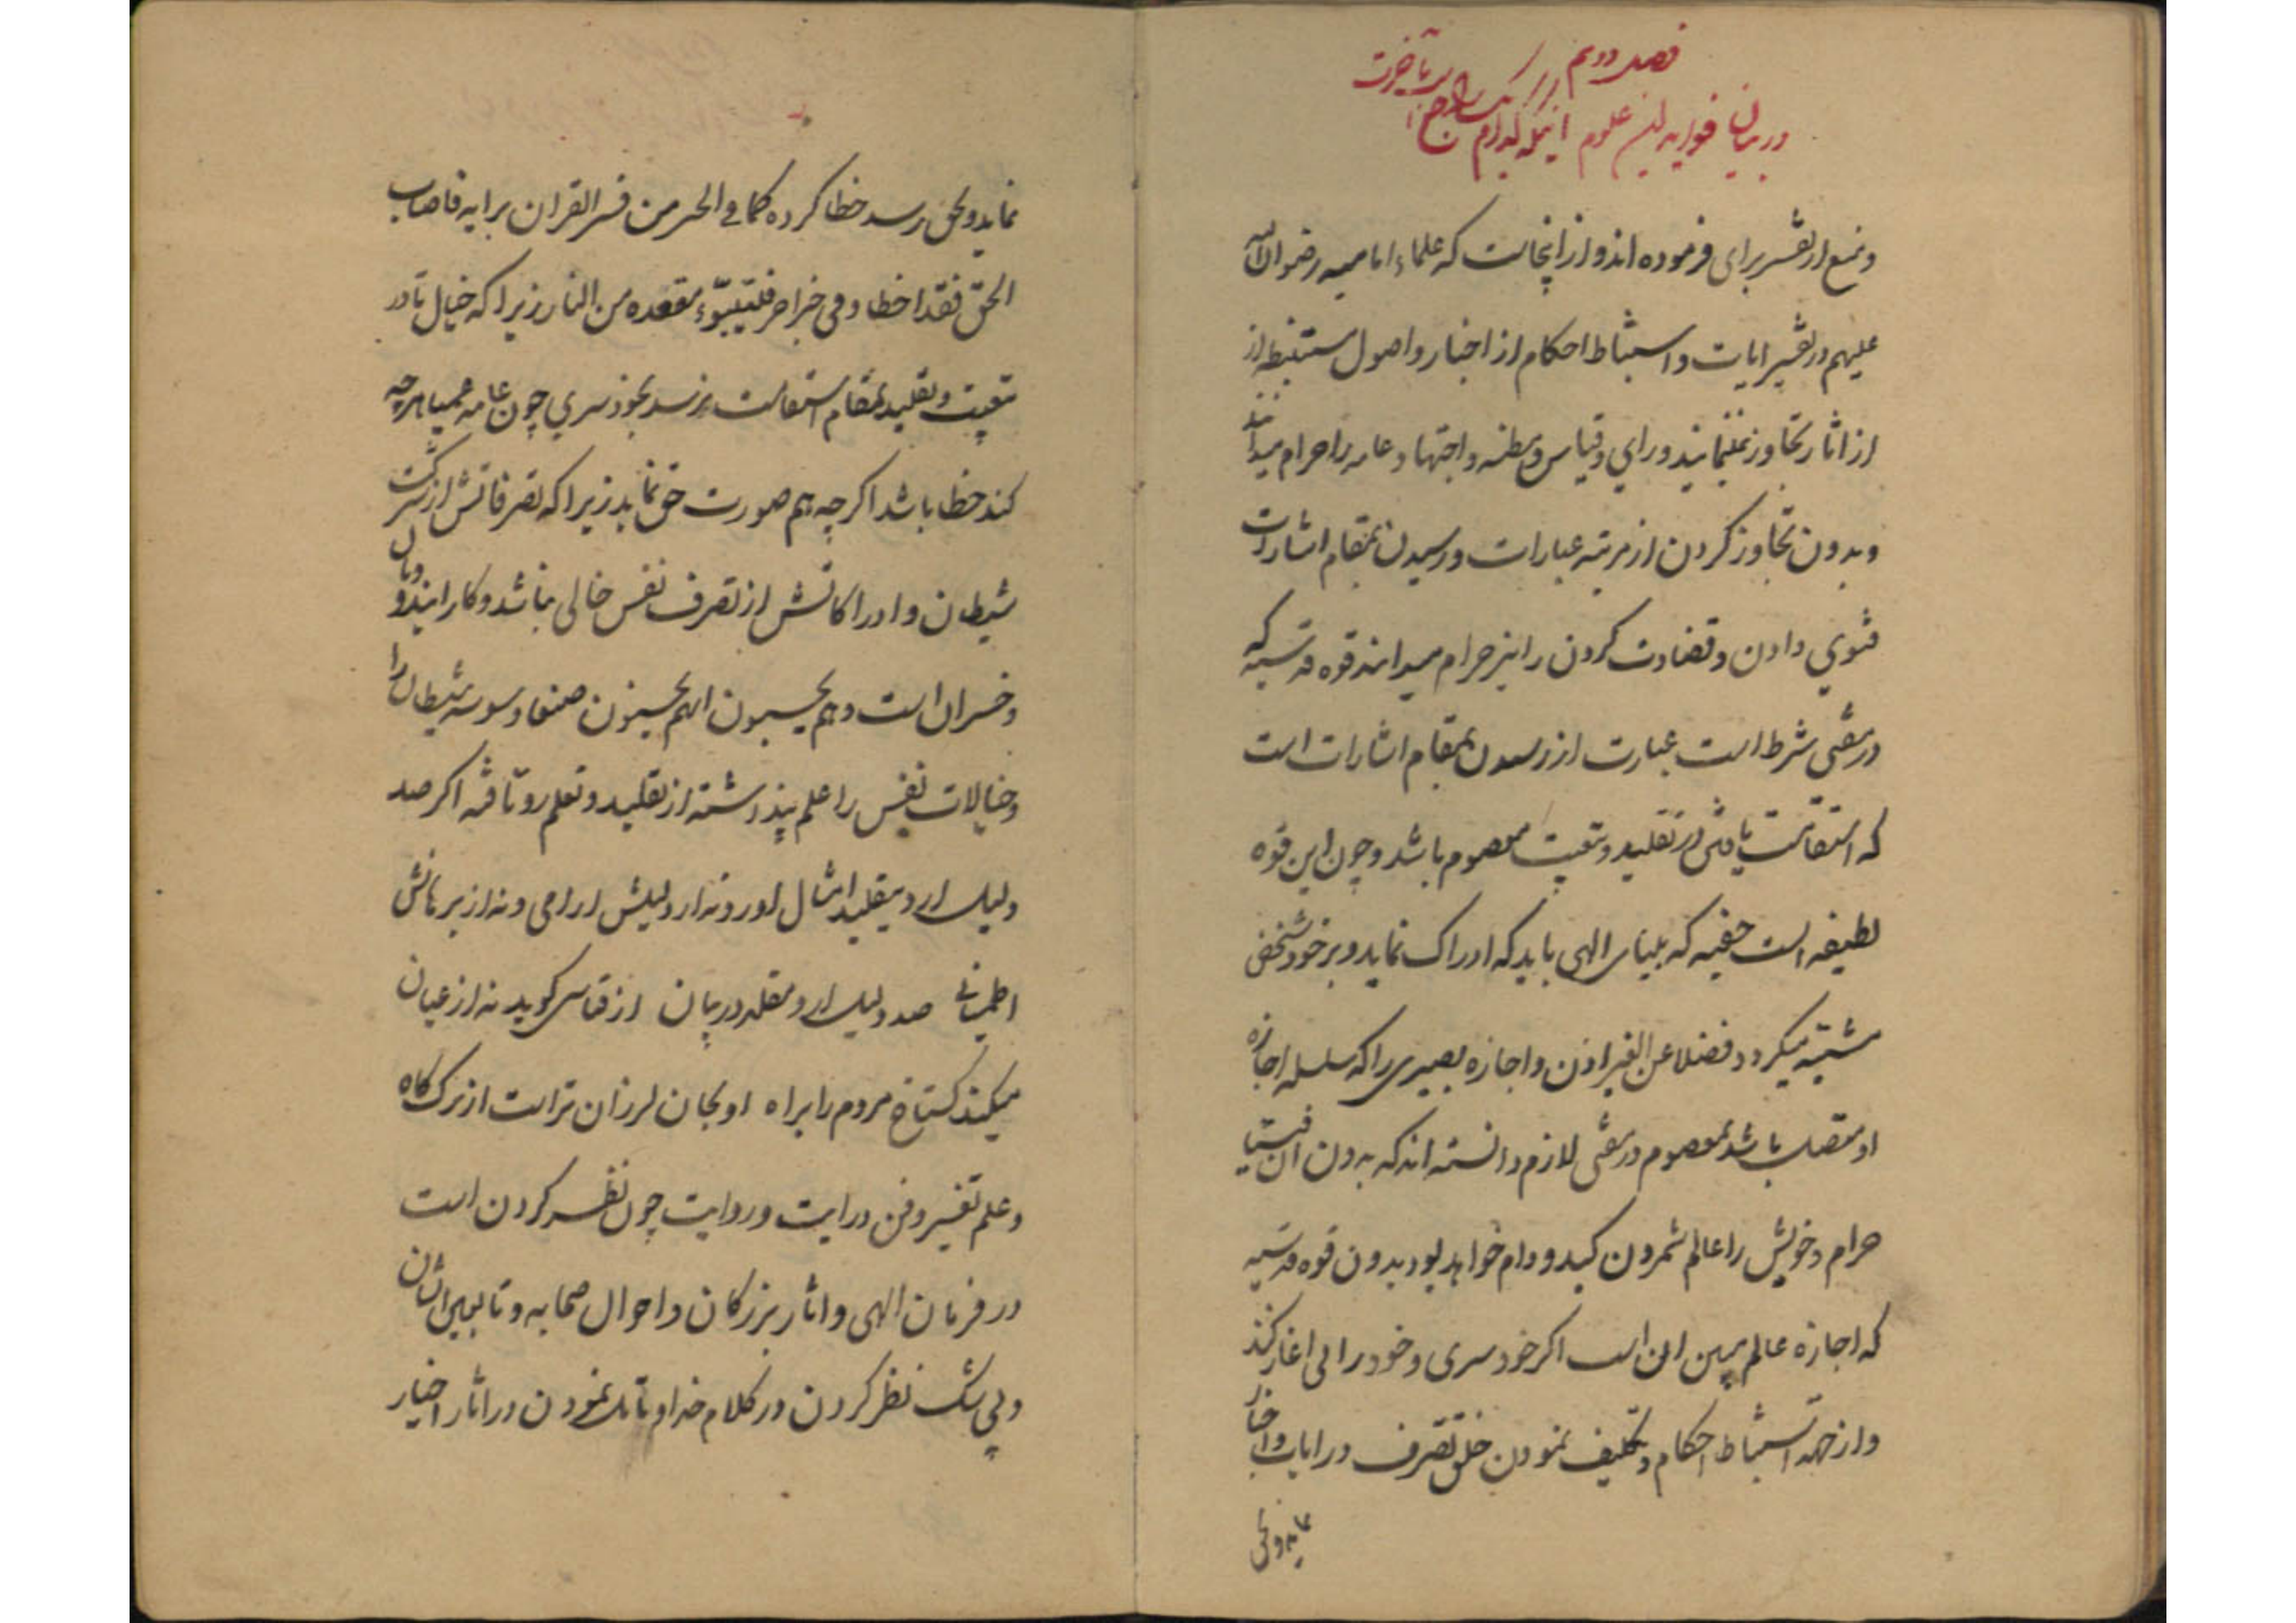 فصل دویم در
در بیان فواید این علوم اینکه کدام
ومنع از تفسیر برای فرموده اند و از اینجاست که علماء امامیه رضوان الله
علیهم در تفسیر ایات و استنباط احکام از اخبار و اصول مستنبطه از
از اثار تجاوز نمینمایند و رای و قیاس و مظنه و اجتهاد عامه را حرام میدانند
و بدون تجاوز کردن از مرتبه عبارات و رسیدن بمقام اشارات
فتوی دادن و قضاوت کردن را نیز حرام میدانند قوه قدسیه که
در مفتی شرط است عبارت از رسیدن بمقام اشارات است
که استقامت یافتن در تقلید و تبعیت معصوم باشد و چون این قوه
لطیفه است خفیه که بینای الهی باید که ادراک نماید و بر خود شخص
مشتبه میگردد فضلا عن الغیر اذن و اجازه بصیری را که سلسله اجازه
او متصل باشد بمعصوم در مفتی لازم دانسته اند که بدون ان فتیا
حرام و خویش را عالم شمردن کید و دام خواهد بود بدون قوه قدسیه
که اجازه عالم مبین ان است اگر خودسری و خودرایی اغاز کند
و از جهه استنباط احکام و تکلیف نمودن خلق تصرف در ایات و اخبار
نماید و بحق
نماید و بحق رسد خطا کرده کما فی الخبر من فسر القران برایه فاصاب
الحق فقد اخطا و فی خبر اخر فلیتبوّء مقعده من النار زیرا که خیال تا در
تبعیت و تقلید بمقام استقامت نرسد بخودسری چون عامه عمیا هرچه
کند خطا باشد اگرچه هم صورت حق نماید زیرا که تصرفاتش از شرکت
شیطان و ادراکاتش از تصرف نفس خالی نباشد و کار ایندو وبال
و خسران است و هم یحسبون انهم یحسنون صنعا وسوسه شیطان را
و خیالات نفس را علم پنداشته از تقلید و تعلم رو تافته اگر صد
دلیل ارد بتقلید امثال اورد نه از دلیلش ارامی و نه از برهانش
اطمینانی صد دلیل ارد مقلد در بیان از قیاسی گوید نه از عیان
میکند گستاخ مردم را براه او بجان لرزان تر است از برک کاه
و علم تفسیر و فن درایت و روایت چون نظر کردن است
در فرمان الهی و اثار بزرگان و احوال صحابه و تابعین ایشان
و بی شک نظر کردن در کلام خدا و تامل نمودن در اثار اخیار